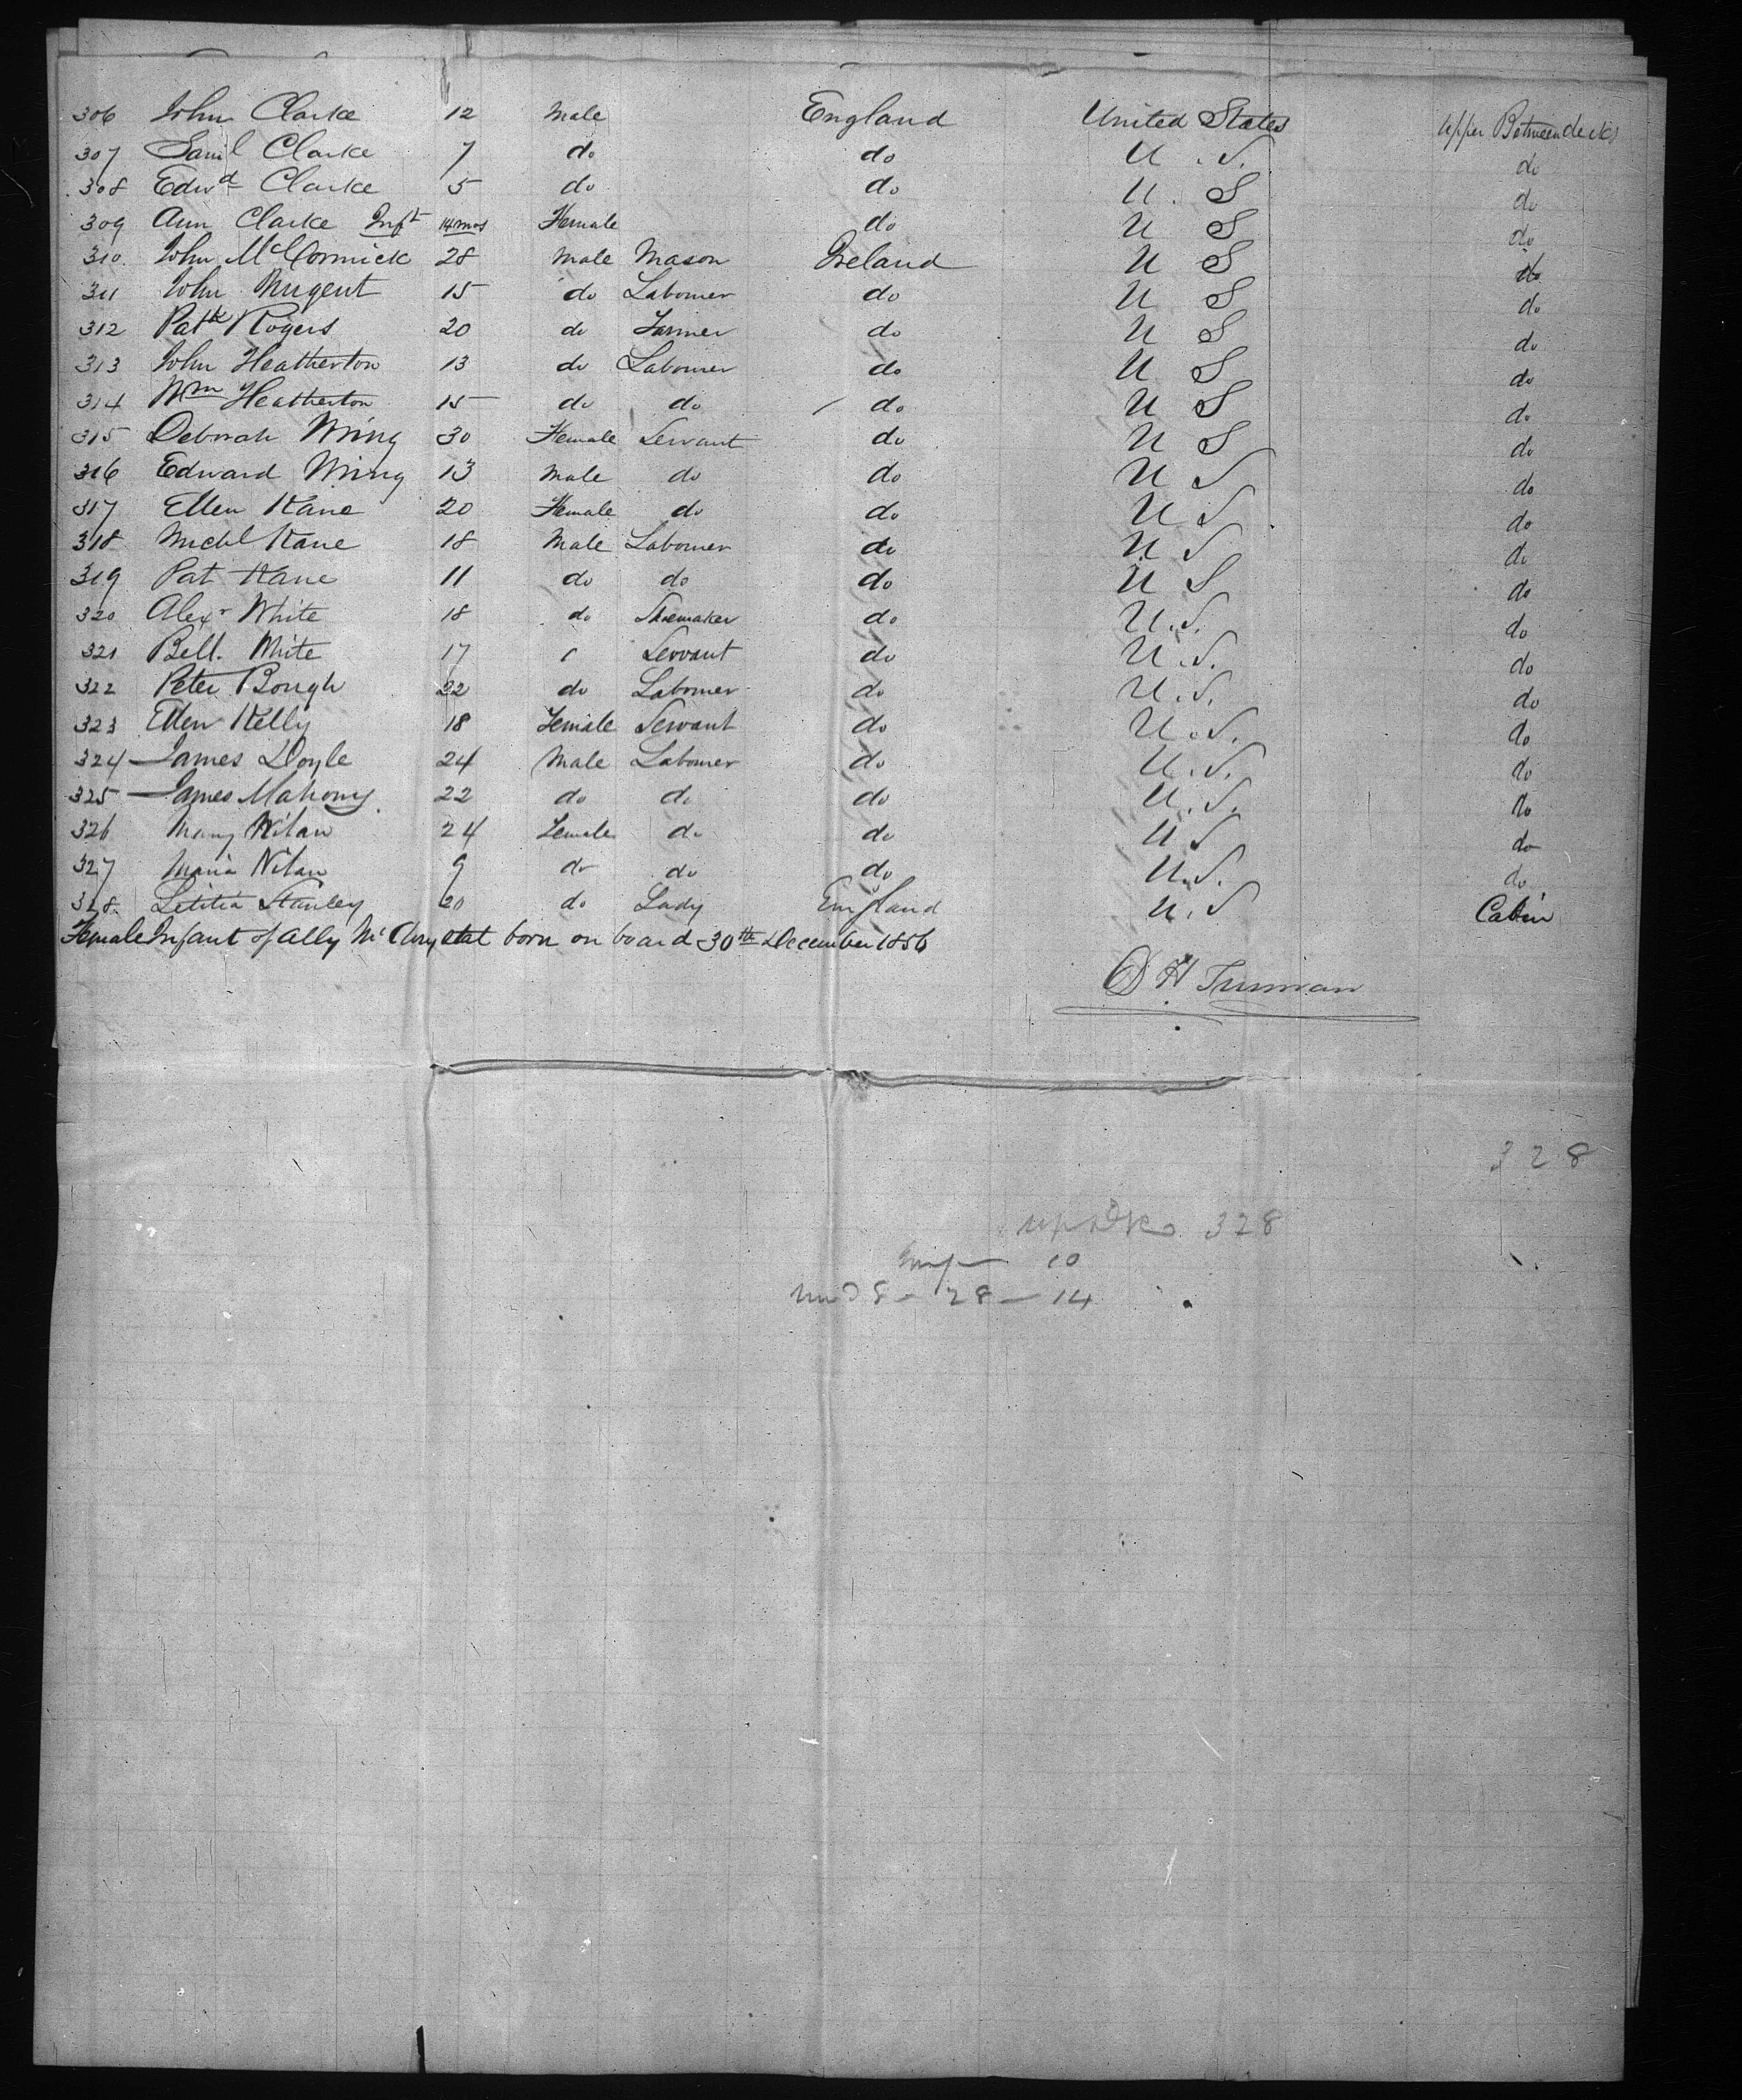 306 John Clarke 12 Male England United States Upper Betweendecks
307 Saml Clarke 7 do do U.S. do
308 Edwd Clarke 5 do do U.S do
309 Ann Clarke Inft 14 mos Female do U S do
310 John McCormick 28 Male Mason Ireland U S do
311 John Nugent 15 do Labourer do U S do
312 Patk Rogers 20 do Farmer do U S do
313 John Heatherton 13 do Labourer do U S do
314 Wm Heatherton 15 do do do U S do
315 Deborah Wring 30 Female Servant do U S do
316 Edward Wring 13 Male do do U S do
317 Ellen Kane 20 Female do do U S do
318 Michl Kane 18 Male Labourer do U S do
319 Pat Kane 11 do do do U S do
320 Alexr White 18 do Shoemaker do U.S. do
321 Bell. White 17 Servant do U.S. do
322 Peter Bough 22 do Labourer do U.S. do
323 Ellen Kelly 18 Female Servant do U.S. do
324 James Doyle 24 Male Labourer do U.S. do
325 James Mahony 22 do do do U.S. do
326 Mary Nilan 24 Female do do U S do
327 Maria Nilan 9 do do do U.S. do
328 Letitia Stanley 20 do Lady England U.S Cabin
Female Infant of Ally born on board 30th December 1856
D H Truman
328
328
10
8 - 28 - 14